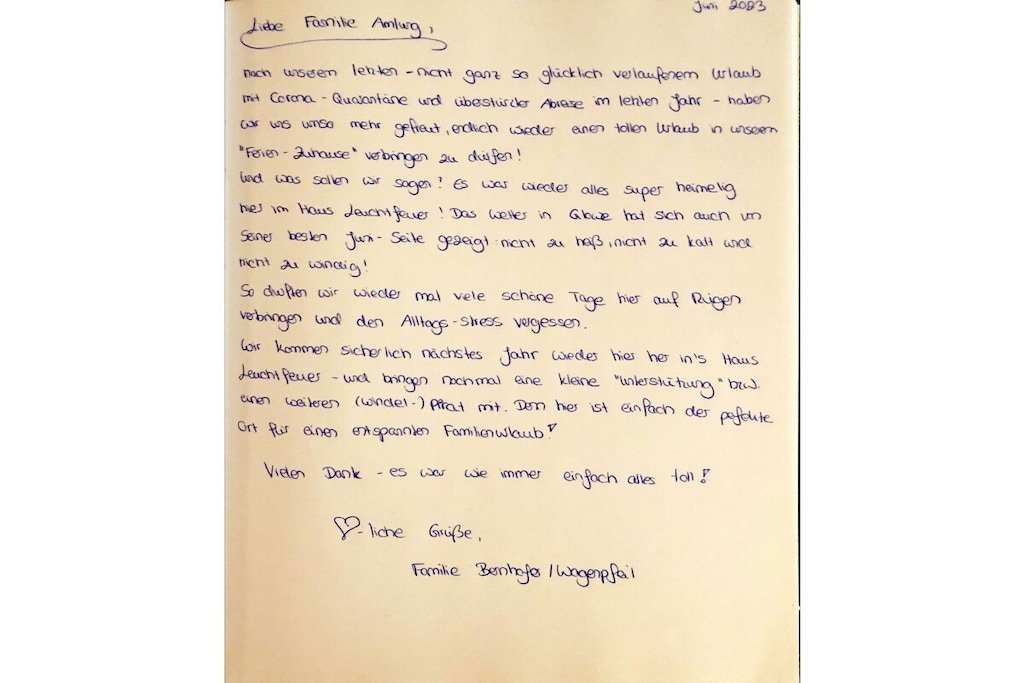 Juni 2023
Liebe Familie Amlung,
nach unserem letzten - nicht ganz so glücklich verlaufenem Urlaub
mit Corona - Quarantäne und überstürzter Abreise im letzten Jahr - haben
wir uns umso mehr gefreut, endlich wieder einen tollen Urlaub in unserem
"Ferien - Zuhause" verbringen zu dürfen!
Und was sollen wir sagen? Es war wieder alles super heimelig
hier im Haus Leuchtfeuer! Das Wetter in Glowe hat sich auch von
seiner besten Juni - Seite gezeigt: nicht zu heiß, nicht zu kalt und
nicht zu windig!
So durften wir wieder mal viele schöne Tage hier auf Rügen
verbringen und den Alltags - stress vergessen.
Wir kommen sicherlich nächstes Jahr wieder hier her in's Haus
Leuchtfeuer - und bringen nochmal eine kleine "Unterstützung" bzw.
einen weiteren (Windel-) Pirat mit. Denn hier ist einfach der perfekte
Ort für einen entspannten Familienurlaub!
Vielen Dank - es war wie immer einfach alles toll!
♡-liche Grüße,
Familie Bernhofer / Wagenpfeil